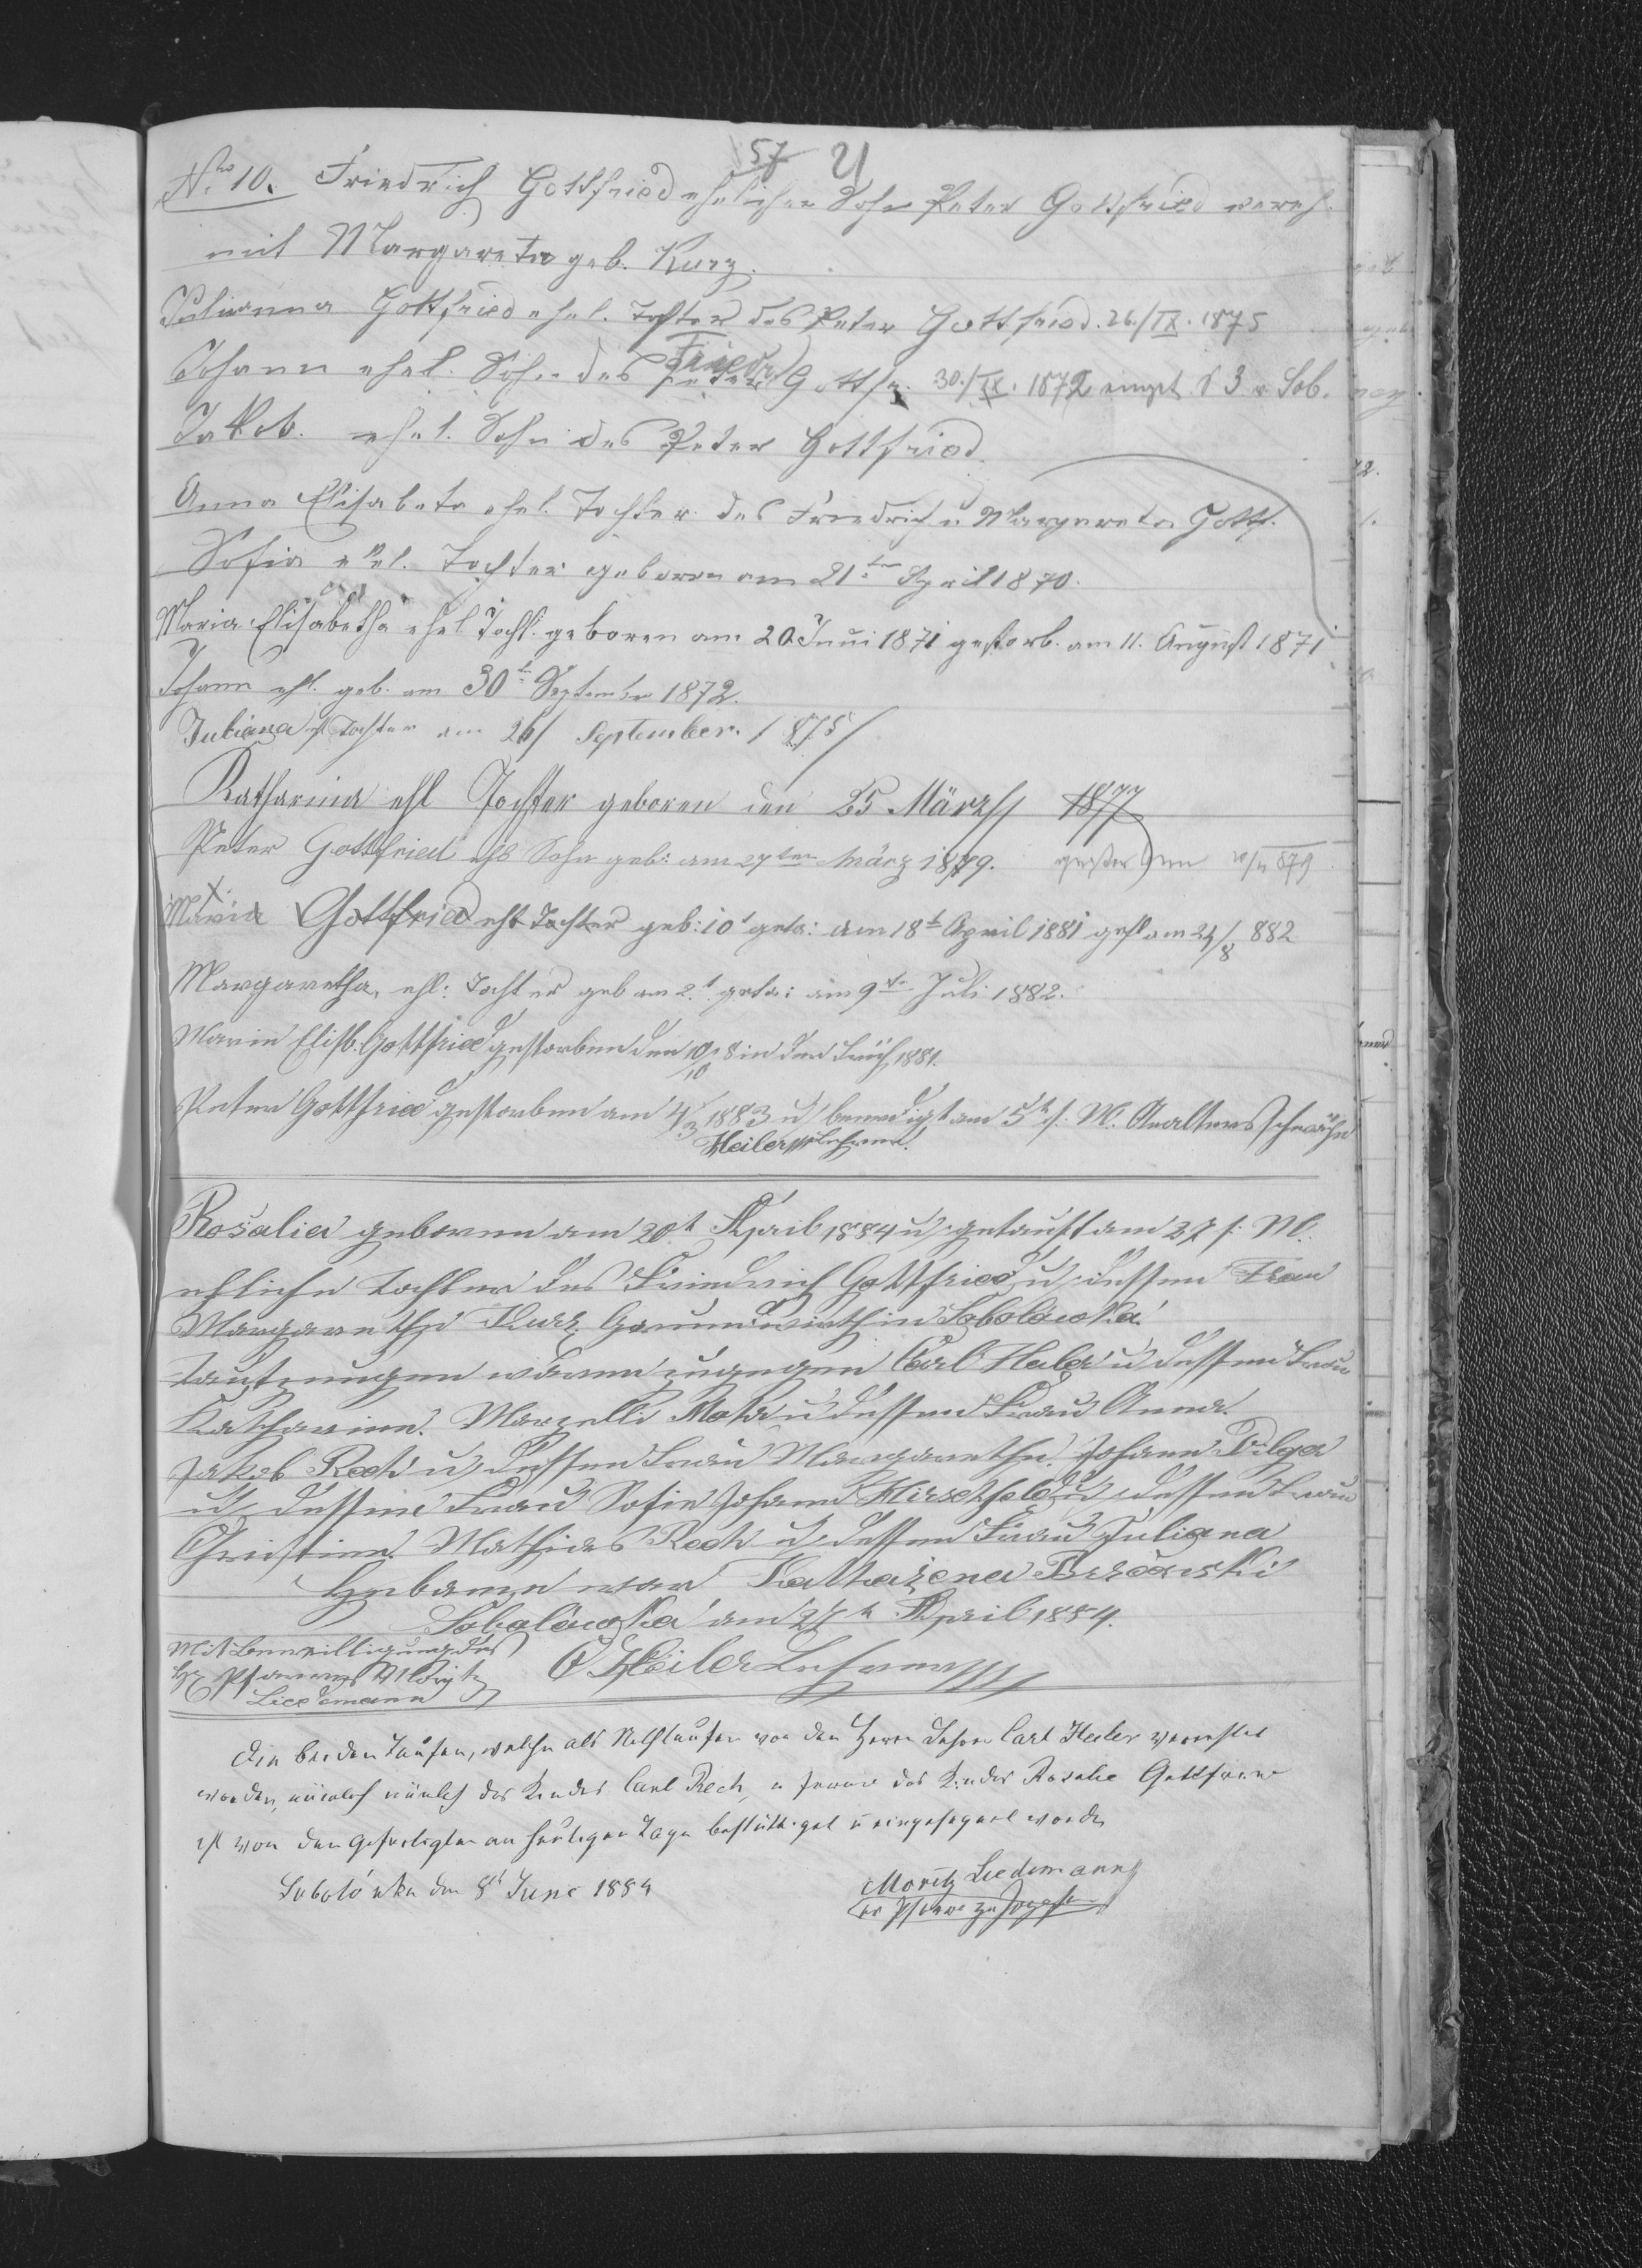 57 U
No 10. Friedrich Gottfried ehelicher Sohn Peter Gottfried vereh.
mit Margareta geb. Kurz.
Julianna Gottfried ehel. Tochter des Peter Gottfried. 26./IX. 1875
Johann ehel. Sohn des Peter Friedr. Gottfr. 30./IX. 1872 S 3 Sob.
Jakob. ehel. Sohn des Peter Gottfried.
Anna Elisabeta ehel. Tochter des Friedrich u Margareta Gottf.
Sofia ehel. Tochter geboren am 21ten April 1870.
Maria Elisabetha ehel Tocht. geboren am 20 Juni 1871 gestorb. am 11. August 1871
Johann ehl. geb. am 30t September 1872.
Juliana ehl Tochter am 26/ September. 1875/
Katharina ehl Tochter geboren den 25 März 1877
Peter Gottfried ehl Sohn geb: am 27ten März 1879. gestorben 879
Maria Gottfried ehl Tochter geb: 10t geta: am 18t April 1881 gest am 24/8 882
Margaretha, ehl: Tochter geb am 2.t geta: am 9ten Juli 1882.
Marie Elisb. Gottfried gestorben den 10/10 8 in der Früh 1881.
Peter Gottfried gestorben am 4/3 1883 u beerdigt am 5t d. M.
Heiler Lehrer.
Rosalia geboren am 20t April 1884 u. getauft am 27 d. M.
ehliche Tochter des Friedrich Gottfried u. dessen Frau
Margaretha Kurz. Grundwirth in Sobolówka.
Taufzeugen waren zugegen Carl Heiler u dessen Frau
Katharine. Marzelli Mota u dessen Frau Anna.
Jakob Rech u. dessen Frau Margaretha. Johann Dilger
u. dessen Frau Sofie Johann Hirschfeld u. dessen Frau
Christine. Mathias Rech u. dessen Frau Juliana
Hebamme war Kathazena Brzowski
Sobolówka am 27t April 1884.
Mit Bewilligung des
H. Pfarrers Moritz
Liedemann
C Heiler Lehrer
Die beiden Taufen, welche als Nothtaufen von den Herrn Lehrer Carl Heiler verrichtet
worden, nämlich des Kindes Carl Rech, u ferner des Kindes Rosalie Gottfried
ist von den Gefertigten am heutigen Tage bestättiget u eingesegnet worden
Sobolówka den 8t Juni 1884
Moritz Liedemann
ev Pfarrer zu Josefsb